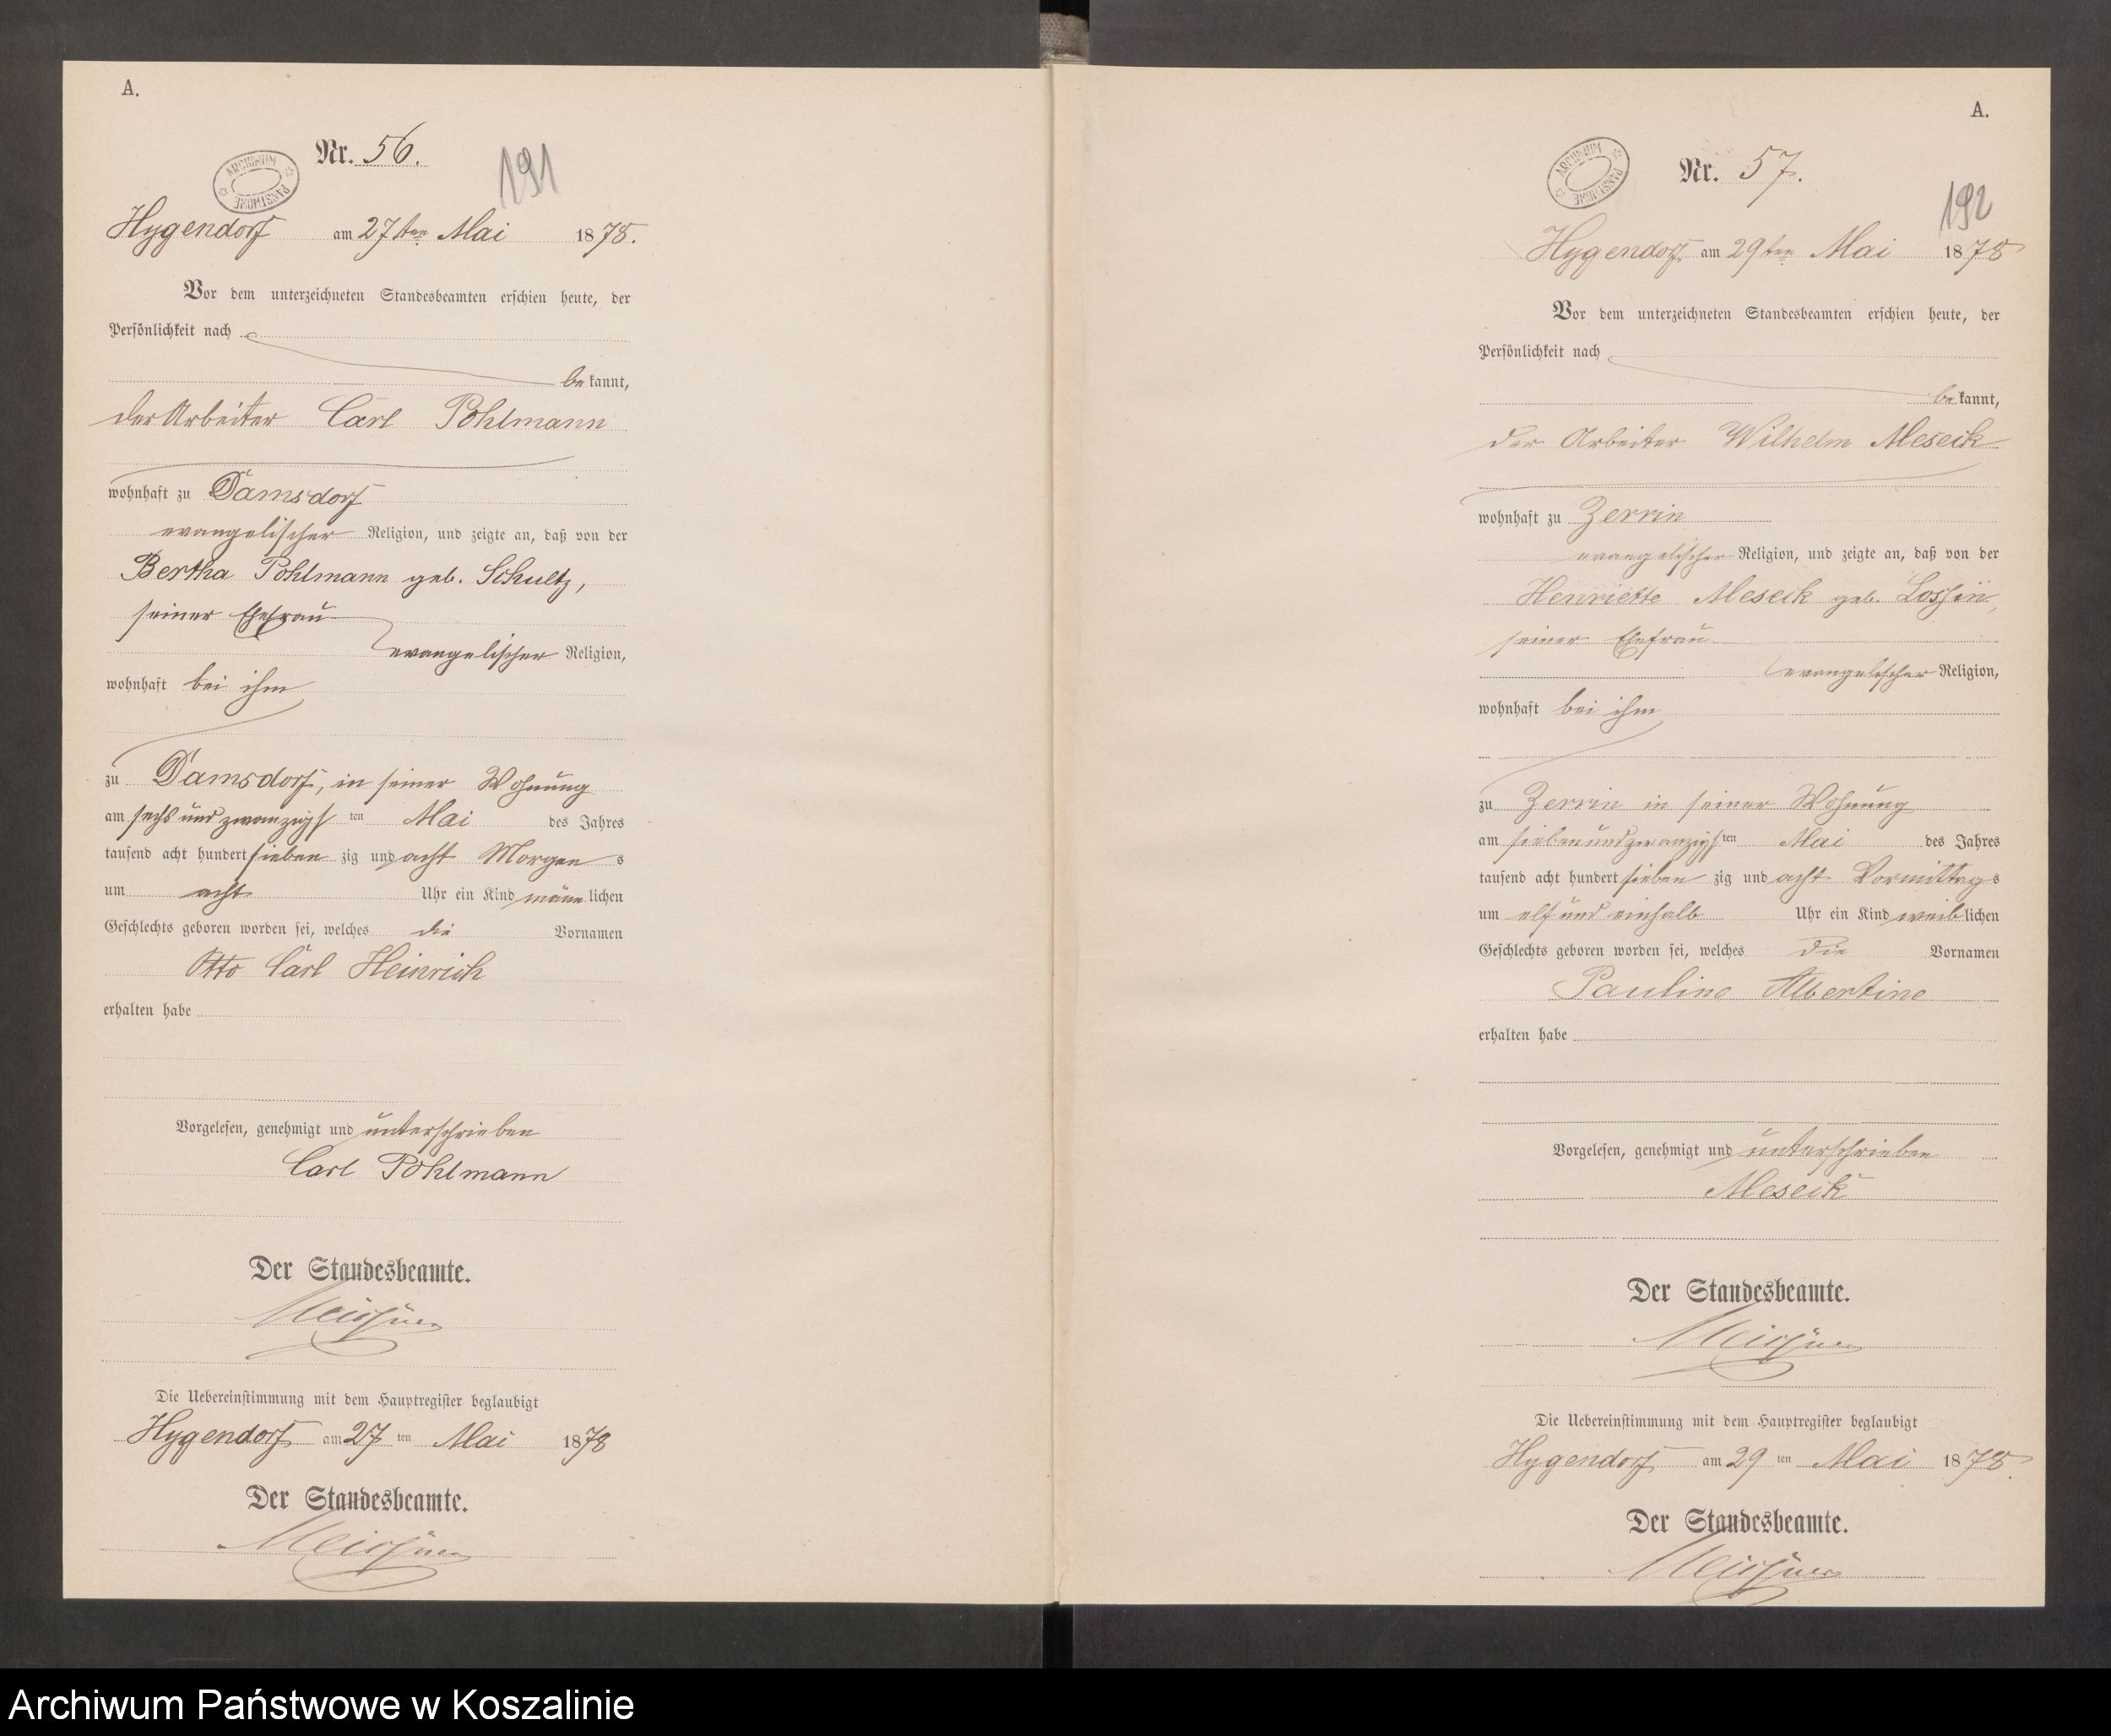 A.
Nr. 56.
191
ARCHIWUM PAŃSTWOWE
Hygendorf am 27ten Mai 1878.
Vor dem unterzeichneten Standesbeamten erschien heute, der
Persönlichkeit nach
bekannt,
der Arbeiter Carl Pohlmann
wohnhaft zu Damsdorf
evangelischer Religion, und zeigte an, daß von der
Bertha Pohlmann geb. Schultz,
seiner Ehefrau
evangelischer Religion,
wohnhaft bei ihm
zu Damsdorf, in seiner Wohnung
am sechs und zwanzigsten Mai des Jahres
tausend acht hundert siebenzig und acht Morgens
um acht Uhr ein Kind männlichen
Geschlechts geboren worden sei, welches die Vornamen
Otto Carl Heinrich
erhalten habe
Vorgelesen, genehmigt und unterschrieben
Carl Pohlmann
Der Standesbeamte.
Die Uebereinstimmung mit dem Hauptregister beglaubigt
Hygendorf am 27ten Mai 1878
Der Standesbeamte.
A.
Nr. 57.
192
ARCHIWUM PAŃSTWOWE
Hygendorf am 29ten Mai 1878
Vor dem unterzeichneten Standesbeamten erschien heute, der
Persönlichkeit nach
bekannt,
der Arbeiter Wilhelm Meseck
wohnhaft zu Zerrin
evangelischer Religion, und zeigte an, daß von der
Henriette Meseck geb. Lossin,
seiner Ehefrau
evangelischer Religion,
wohnhaft bei ihm
zu Zerrin in seiner Wohnung
am siebenundzwanzigsten Mai des Jahres
tausend acht hundert siebenzig und acht Vormittags
um elf und einhalb Uhr ein Kind weiblichen
Geschlechts geboren worden sei, welches die Vornamen
Pauline Albertine
erhalten habe
Vorgelesen, genehmigt und unterschrieben
Meseck
Der Standesbeamte.
Die Uebereinstimmung mit dem Hauptregister beglaubigt
Hygendorf am 29ten Mai 1878.
Der Standesbeamte.
Archiwum Państwowe w Koszalinie